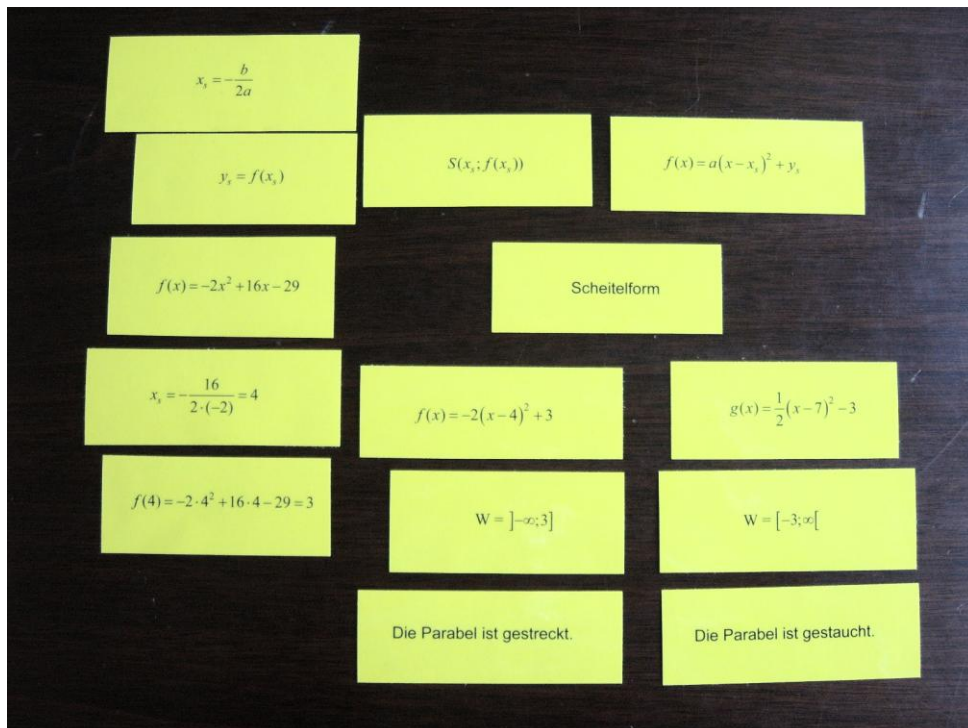 x_s = -\frac{b}{2a}
y_s = f(x_s)
S(x_s; f(x_s))
f(x) = a(x - x_s)^2 + y_s
f(x) = -2x^2 + 16x - 29
Scheitelform
x_s = -\frac{16}{2·(-2)} = 4
f(x) = -2(x - 4)^2 + 3
g(x) = \frac{1}{2}(x - 7)^2 - 3
f(4) = -2·4^2 + 16·4 - 29 = 3
W = ]-∞;3]
W = [-3;∞[
Die Parabel ist gestreckt.
Die Parabel ist gestaucht.